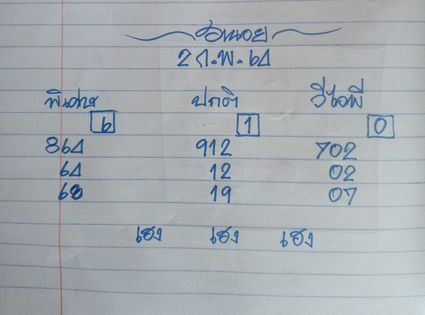 ฮานอย
2 ก.พ. 64
พิเศษ ปกติ วีไอพี
6 1 0
864 912 702
64 12 02
68 19 07
เฮง เฮง เฮง